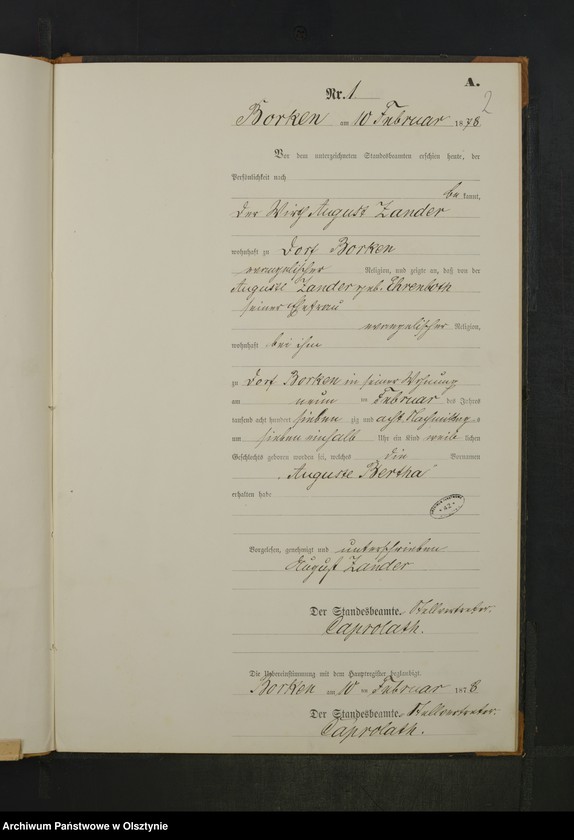 A.
Nr. 1
2
Borken am 10 Februar 1878
Vor dem unterzeichneten Standesbeamten erschien heute, der
Persönlichkeit nach
bekannt,
der Wirth August Zander
wohnhaft zu Dorf Borken
evangelischer Religion, und zeigte an, daß von der
Auguste Zander geb. Ehrenboth
seiner Ehefrau
evangelischer Religion,
wohnhaft bei ihm
zu Dorf Borken in seiner Wohnung
am neun ten Februar des Jahres
tausend acht hundert sieben zig und acht Nachmittags
um sieben einhalb Uhr ein Kind weib lichen
Geschlechts geboren worden sei, welches die Vornamen
„Auguste Bertha"
erhalten habe
Vorgelesen, genehmigt und unterschrieben
August Zander
Der Standesbeamte. Stellvertreter.
Caprolath.
Die Uebereinstimmung mit dem Hauptregister beglaubigt.
Borken am 10 ten Februar 1878.
Der Standesbeamte. Stellvertreter.
Caprolath.
Archiwum Państwowe w Olsztynie